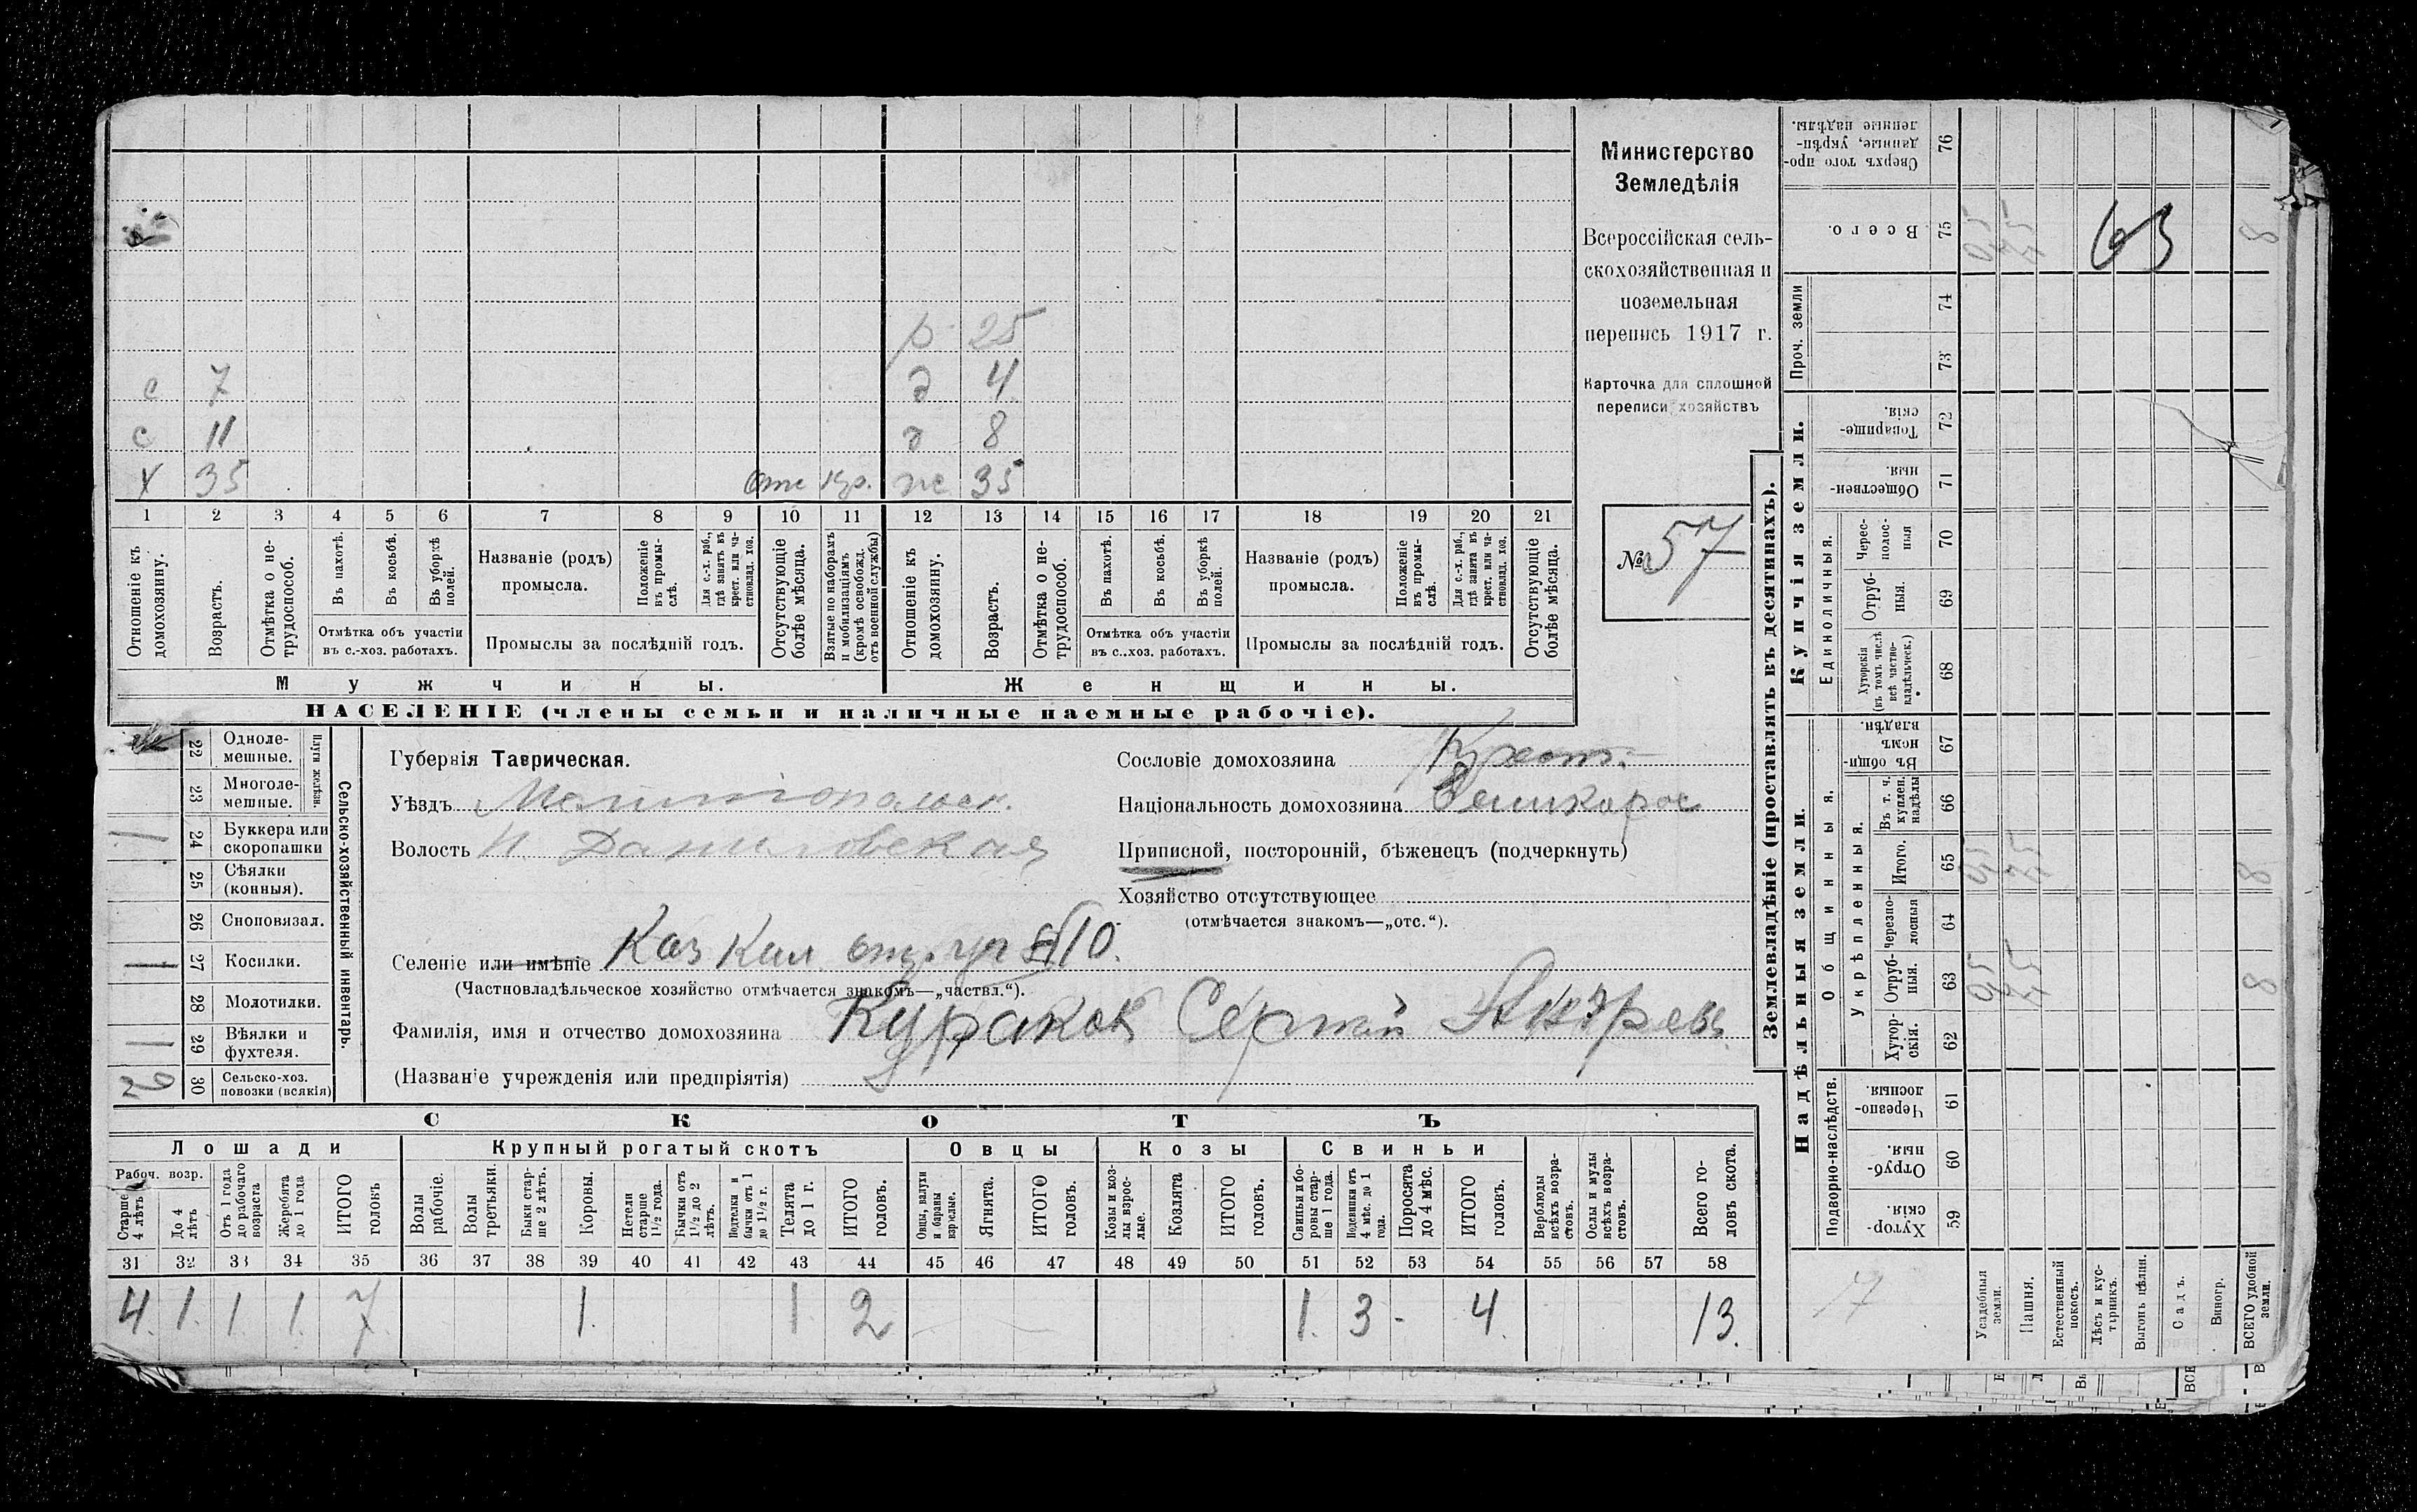 Министерство
Земледѣлія
Всероссійская сель-
скохозяйственная и
поземельная
перепись 1917 г.
Карточка для сплошной
переписи хозяйствъ
№ 57
р 25
с 7 д 4
с 11 д 8
х 35 35
1 2 3 4 5 6 7 8 9 10 11 12 13 14 15 16 17 18 19 20 21
Отношеніе къ домохозяину.
Возрастъ.
Отмѣтка о не-трудоспособ.
Въ пахотѣ.
Въ косьбѣ.
Въ уборкѣ полей.
Отмѣтка объ участіи
въ с.-хоз. работахъ.
Названіе (родъ)
промысла.
Положеніе въ промы-слѣ.
Для с.-х. раб., гдѣ занятъ въ крест. или ча-стновлад. хоз.
Промыслы за послѣдній годъ.
Отсутствующіе болѣе мѣсяца.
Взятые по наборамъ и мобилизаціямъ (кромѣ освобожд. отъ военной службы)
Отношеніе къ домохозяину.
Возрастъ.
Отмѣтка о не-трудоспособ.
Въ пахотѣ.
Въ косьбѣ.
Въ уборкѣ полей.
Отмѣтка объ участіи
въ с..хоз. работахъ.
Названіе (родъ)
промысла.
Положеніе въ промы-слѣ.
Для с.-х. раб., гдѣ занята въ крест. или ча-стновлад. хоз.
Промыслы за послѣдній годъ.
Отсутствующіе болѣе мѣсяца.
Мужчины. Женщины.
НАСЕЛЕНІЕ (члены семьи и наличные наемные рабочіе).
Сельско-хозяйственный инвентарь.
Плуги желѣзн.
22 Одноле-мешные.
23 Многоле-мешные.
24 Буккера или скоропашки
25 Сѣялки (конныя).
26 Сноповязал.
27 Косилки.
28 Молотилки.
29 Вѣялки и фухтеля.
30 Сельско-хоз. повозки (всякія)
Губернія Таврическая.
Уѣздъ Мелитопольск.
Волость Н. Даниловская
Селеніе или имѣніе Каз Кил отр. уч №10.
(Частновладѣльческое хозяйство отмѣчается знакомъ—„частвл.“).
Фамилія, имя и отчество домохозяина Кураков Сергѣй Андреев
(Названіе учрежденія или предпріятія)
Сословіе домохозяина Крест.
Національность домохозяина Великорос
Приписной, посторонній, бѣженецъ (подчеркнуть)
Хозяйство отсутствующее
(отмѣчается знакомъ—„отс.“).
СКОТЪ
Лошади Крупный рогатый скотъ Овцы Козы Свиньи
Рабоч. возр.
Старше 4 лѣтъ
До 4 лѣтъ
Отъ 1 года до рабочаго возраста
Жеребята до 1 года
ИТОГО головъ
Волы рабочіе.
Волы третьяки.
Быки стар-ше 2 лѣтъ.
Коровы.
Нетели старше 1½ года.
Бычки отъ 1½ до 2 лѣтъ.
Подтелки и бычки отъ 1 до 1½ г.
Телята до 1 г.
ИТОГО головъ.
Овцы, валухи и бараны взрослые.
Ягнята.
ИТОГО головъ.
Козы и коз-лы взрос-лые.
Козлята
ИТОГО головъ.
Свиньи и бо-ровы стар-ше 1 года.
Подсвинки отъ 4 мѣс. до 1 года.
Поросята до 4 мѣс.
ИТОГО головъ.
Верблюды всѣхъ возра-стовъ.
Ослы и мулы всѣхъ возра-стовъ.
Всего го-ловъ скота.
31 32 33 34 35 36 37 38 39 40 41 42 43 44 45 46 47 48 49 50 51 52 53 54 55 56 57 58
4. 1. 1 1. 7. 1. 1 2 1. 3 - 4. 13.
Землевладѣніе (проставлять въ десятинахъ).
Надѣльныя земли. Купчія земли.
Подворно-наслѣдств.
Общинныя.
Укрѣпленныя.
Единоличныя.
Проч. земли
59 Хутор-скія.
60 Отруб-ныя.
61 Черезпо-лосныя
62 Хутор-скія.
63 Отруб-ныя.
64 Черезпо-лосныя
65 Итого.
66 Въ т. ч. куплен. надѣлы
67 Въ общи-номъ владѣн.
68 Хуторскія (въ томъ числѣ всѣ частно-владѣльческ.)
69 Отруб-ныя.
70 Черес-полос-ныя
71 Обществен-ныя.
72 Товарище-скія.
73
74
75 Всего.
76 Сверхъ того про-данные, укрѣп-ленные надѣлы.
63
17
Усадебныя земли.
Пашня.
Естественный покосъ.
Лѣсъ и кус-тарникъ.
Выгонъ цѣлин.
Садъ.
Виногр.
ВСЕГО удобной земли.